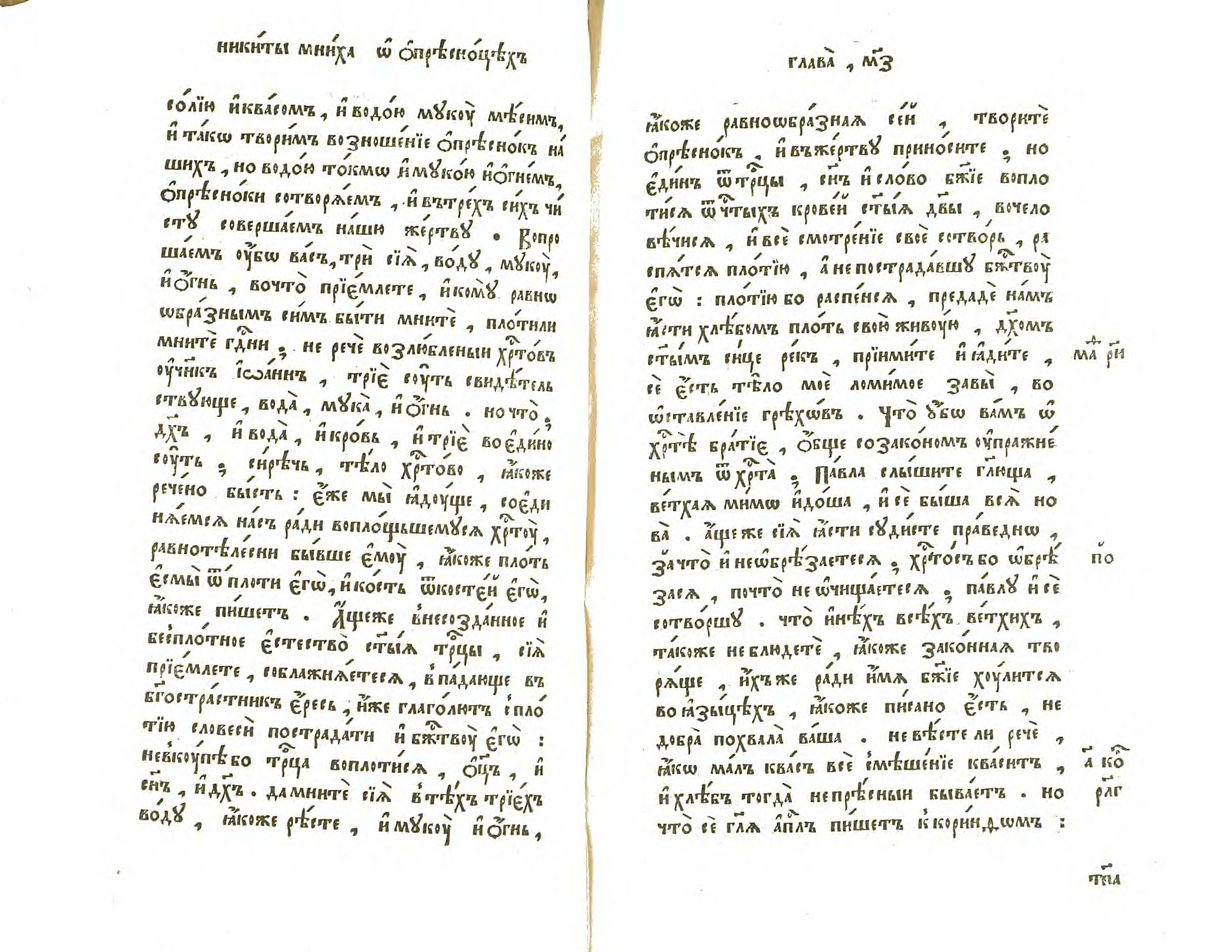 никѝты мни́ха ѡ҆ ѻ҆прѣсно́цѣхъ
со́лїю и҆ква́сомъ , и҆ водо́ю мꙋкоу̀ мѣ́симъ,
и҆ та́кѡ твори́мъ возноше́нїе ѻ҆прѣсно́къ на́
шихъ , но водо́ю то́кмѡ и҆ мꙋко́ю и҆ѻ҆гне́мъ,
ѻ҆прѣсно́ки сотворѧ́емъ , и҆ вътре́хъ си́хъ чи́
стꙋ соверша́емъ на́шꙋ же́ртвꙋ . Вопро
ша́емъ оу҆́бѡ ва́съ, трѝ сїѧ̀ , во́дꙋ , мꙋкоу̀,
и҆ ѻ҆́гнь , вочто̀ прїе́млете , и҆ комꙋ̀ равнѡ
ѡбра́знымъ си́мъ бы́ти мнитѐ , пло́тили
мнитѐ гдⷭ҇ни ; не речѐ возлю́бленыи хрⷭ҇то́въ
оу҆чн҃къ і҆ѡа́ннъ , трїѐ соу́ть свидѣ́тель
ствꙋюще , вода̀ , мꙋка̀ , и҆ ѻ҆́гнь . но что̀ ;
дх҃ъ , и҆ вода̀ , и҆ кро́вь , и҆ трїѐ во є҆ди́но
соу́ть ; си́рѣчь , тѣ́ло хрⷭ҇то́во , ꙗ҆́коже
рече́но бы́сть : є҆́же мы̀ ꙗ҆доу́ще , соєди
нѧ́емсѧ на́съ ра́ди вопло́щьшемꙋсѧ хрⷭ҇тоу̀,
равнотѣле́сни бы́вше є҆моу̀ , ꙗ҆́коже пло́ть
є҆смы̀ ѿ пло́ти є҆гѡ̀, и҆ ко́сть ѿ косте́й є҆гѡ̀,
ꙗ҆́коже пи́шетъ . А҆́щеже в несозда́нное и҆
беспло́тное є҆стество̀ ст҃ы́ѧ трⷪ҇цы , сїѧ̀
прїе́млете , соблажнѧ́етесѧ , в па́дающе въ
бг҃остра́стникъ є҆́ресь , и҆́же глаго́лютъ с пло́
тїю словесѝ пострада́ти и҆ бжⷭ҇твоу̀ є҆гѡ̀ :
невкоу́пѣ бо трⷪ҇ца воплоти́сѧ , ѻ҆ц҃ъ , и҆
сн҃ъ , и҆ дх҃ъ . да мнитѐ сїѧ̀ в тѣ́хъ трїе́хъ
во́дꙋ , ꙗ҆́коже рѣ́сте , и҆ мꙋкоу̀ и҆ ѻ҆́гнь ,
глава̀ , м҃з
ꙗ҆́коже равноѡбра́знаѧ се́й , творитѐ
ѻ҆прѣсно́къ , и҆ въже́ртвꙋ прино́сите ; но
є҆ди́нъ ѿ трⷪ҇цы , сн҃ъ и҆ сло́во бж҃їе вопло
ти́сѧ ѿ чⷭ҇тыхъ крове́й ст҃ы́ѧ дв҃ы , вочело
вѣ́чисѧ , и҆ всѐ смотре́нїе своѐ сотво́рь , ра
спѧ́тсѧ пло́тїю , а҆ не пострада́вшꙋ бжⷭ҇твоу̀
є҆гѡ̀ : пло́тїю бо распе́нсѧ , предадѐ на́мъ
ꙗ҆́сти хлѣ́бомъ пло́ть свою̀ живоу́ю , дх҃омъ
ст҃ы́мъ си́це ре́къ , прїими́те и҆ ꙗ҆ди́те ,
маⷴ҇ р҃и
сѐ є҆́сть тѣ́ло моѐ ломи́мое за вы̀ , во
ѡ҆ставле́нїе грѣхѡ́въ . Что̀ ᲂу҆́бѡ ва́мъ ѡ҆
хрⷭ҇тѣ̀ бра́тїє , ѻ҆́бще созако́номъ оу҆пражне́
нымъ ѿ хрⷭ҇та̀ ; Па́вла слы́шите гл҃юща ,
ве́тхаѧ ми́мѡ и҆до́ша , и҆ сѐ бы́ша всѧ̀ но
ва̀ . а҆́ще же сїѧ̀ ꙗ҆́сти сꙋ́дисте пра́веднѡ ,
за что̀ и҆ неѡбрѣ́заетесѧ ; хрⷭ҇то́съ бо ѡ҆брѣ́
п҃о
засѧ , почто̀ не ѡ҆чища́етесѧ ; па́влꙋ и҆ сѐ
сотво́ршꙋ . что̀ и҆нѣ́хъ всѣ́хъ ве́тхихъ ,
та́коже не блюдетѐ , ꙗ҆́коже зако́ннаѧ тво
рѧ́ще , и҆́хъже ра́ди и҆́мѧ бж҃їе хоу́литсѧ
во ꙗ҆зы́цѣхъ , ꙗ҆́коже пи́сано є҆́сть , не
добра̀ похвала̀ ва́ша . не вѣ́сте ли речѐ ,
ꙗ҆́кѡ ма́лъ ква́съ всѐ смѣше́нїе ква́ситъ ,
а҃ коⷬ҇
и҆ хлѣ́бъ тогда̀ непрѣ́сныи быва́етъ . но
рл҃г
что̀ сѐ гл҃ѧ а҆пⷭ҇лъ пи́шетъ к корин̾ѳѡмъ :